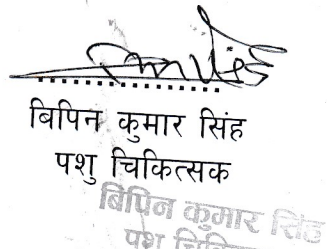 बिपिन कुमार सिंह
पशु चिकित्सक
बिपिन कुमार सिंह
पशु